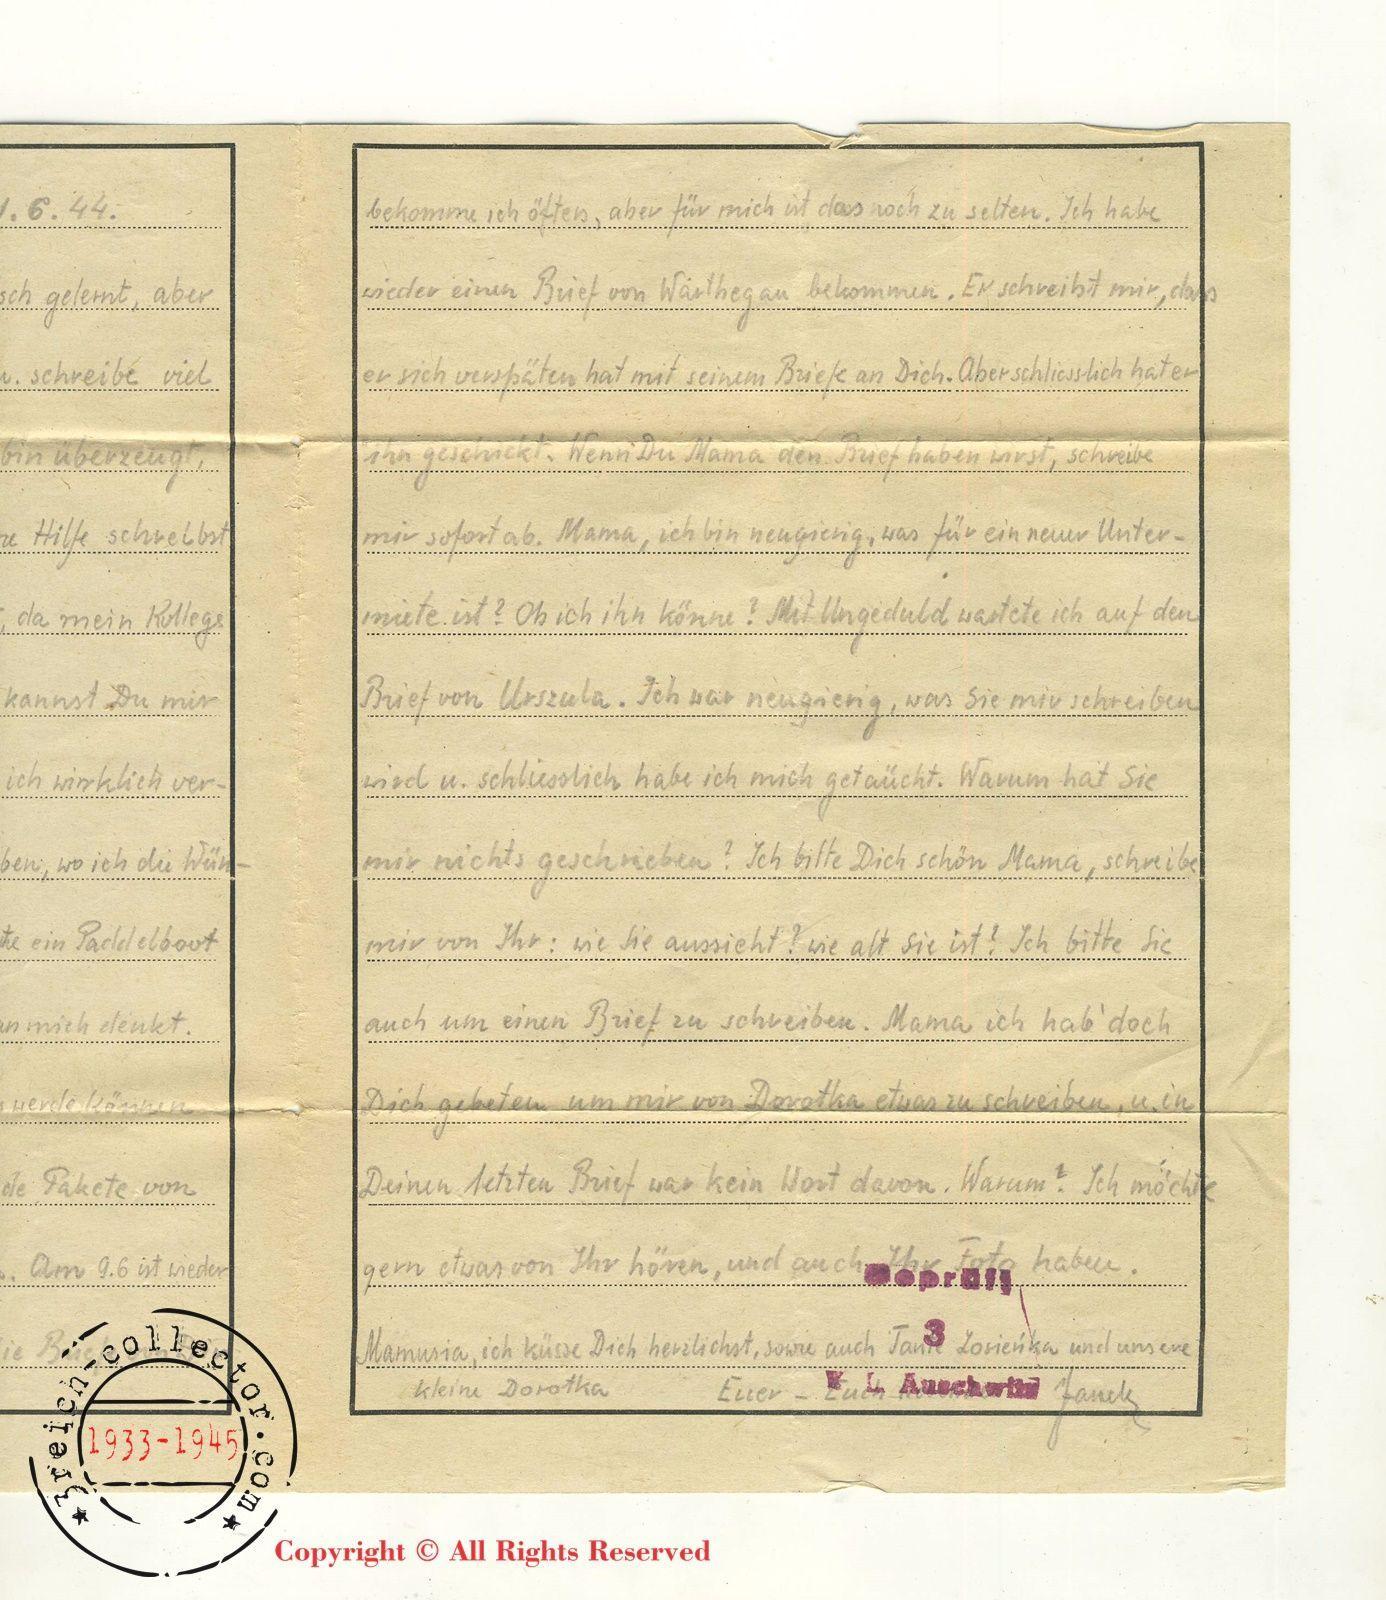 1.6.44.
sch gelernt, aber
u. schreibe viel
bin überzeugt,
re Hilfe schreibst
, da mein Kollege
kannst Du mir
ich wirklich ver-
ben, wo ich die Wün-
te ein Paddelboot
an mich denkt.
werde können
de Pakete von
. Am 9.6 ist wieder
die
bekomme ich öfters, aber für mich ist das noch zu selten. Ich habe
wieder einen Brief von Warthegau bekommen. Er schreibt mir, dass
er sich verspäten hat mit seinem Briefe an Dich. Aber schliesslich hat er
ihn geschickt. Wenn Du Mama den Brief haben wirst, schreibe
mir sofort ab. Mama, ich bin neugierig, was für ein neuer Unter-
miete ist? Ob ich ihn könne? Mit Ungeduld wartete ich auf den
Brief von Urszula. Ich war neugierig, was Sie mir schreiben
wird u. schliesslich habe ich mich getaücht. Warum hat Sie
mir nichts geschrieben? Ich bitte Dich schön Mama, schreibe
mir von Ihr: wie Sie aussieht? wie alt Sie ist? Ich bitte Sie
auch um einen Brief zu schreiben. Mama ich hab' doch
Dich gebeten um mir von Dorotka etwas zu schreiben, u. in
Deinen letzten Brief war kein Wort davon. Warum? Ich möchte
gern etwas von Ihr hören, und auch Ihr Foto haben.
Geprüft
3
K. L. Auschwitz
Mamusia, ich küsse Dich herzlichst, sowie auch Tante Zosieńka und unsere
kleine Dorotka Euer – Euch Janek
3reich-collector.com
1933-1945
Copyright © All Rights Reserved